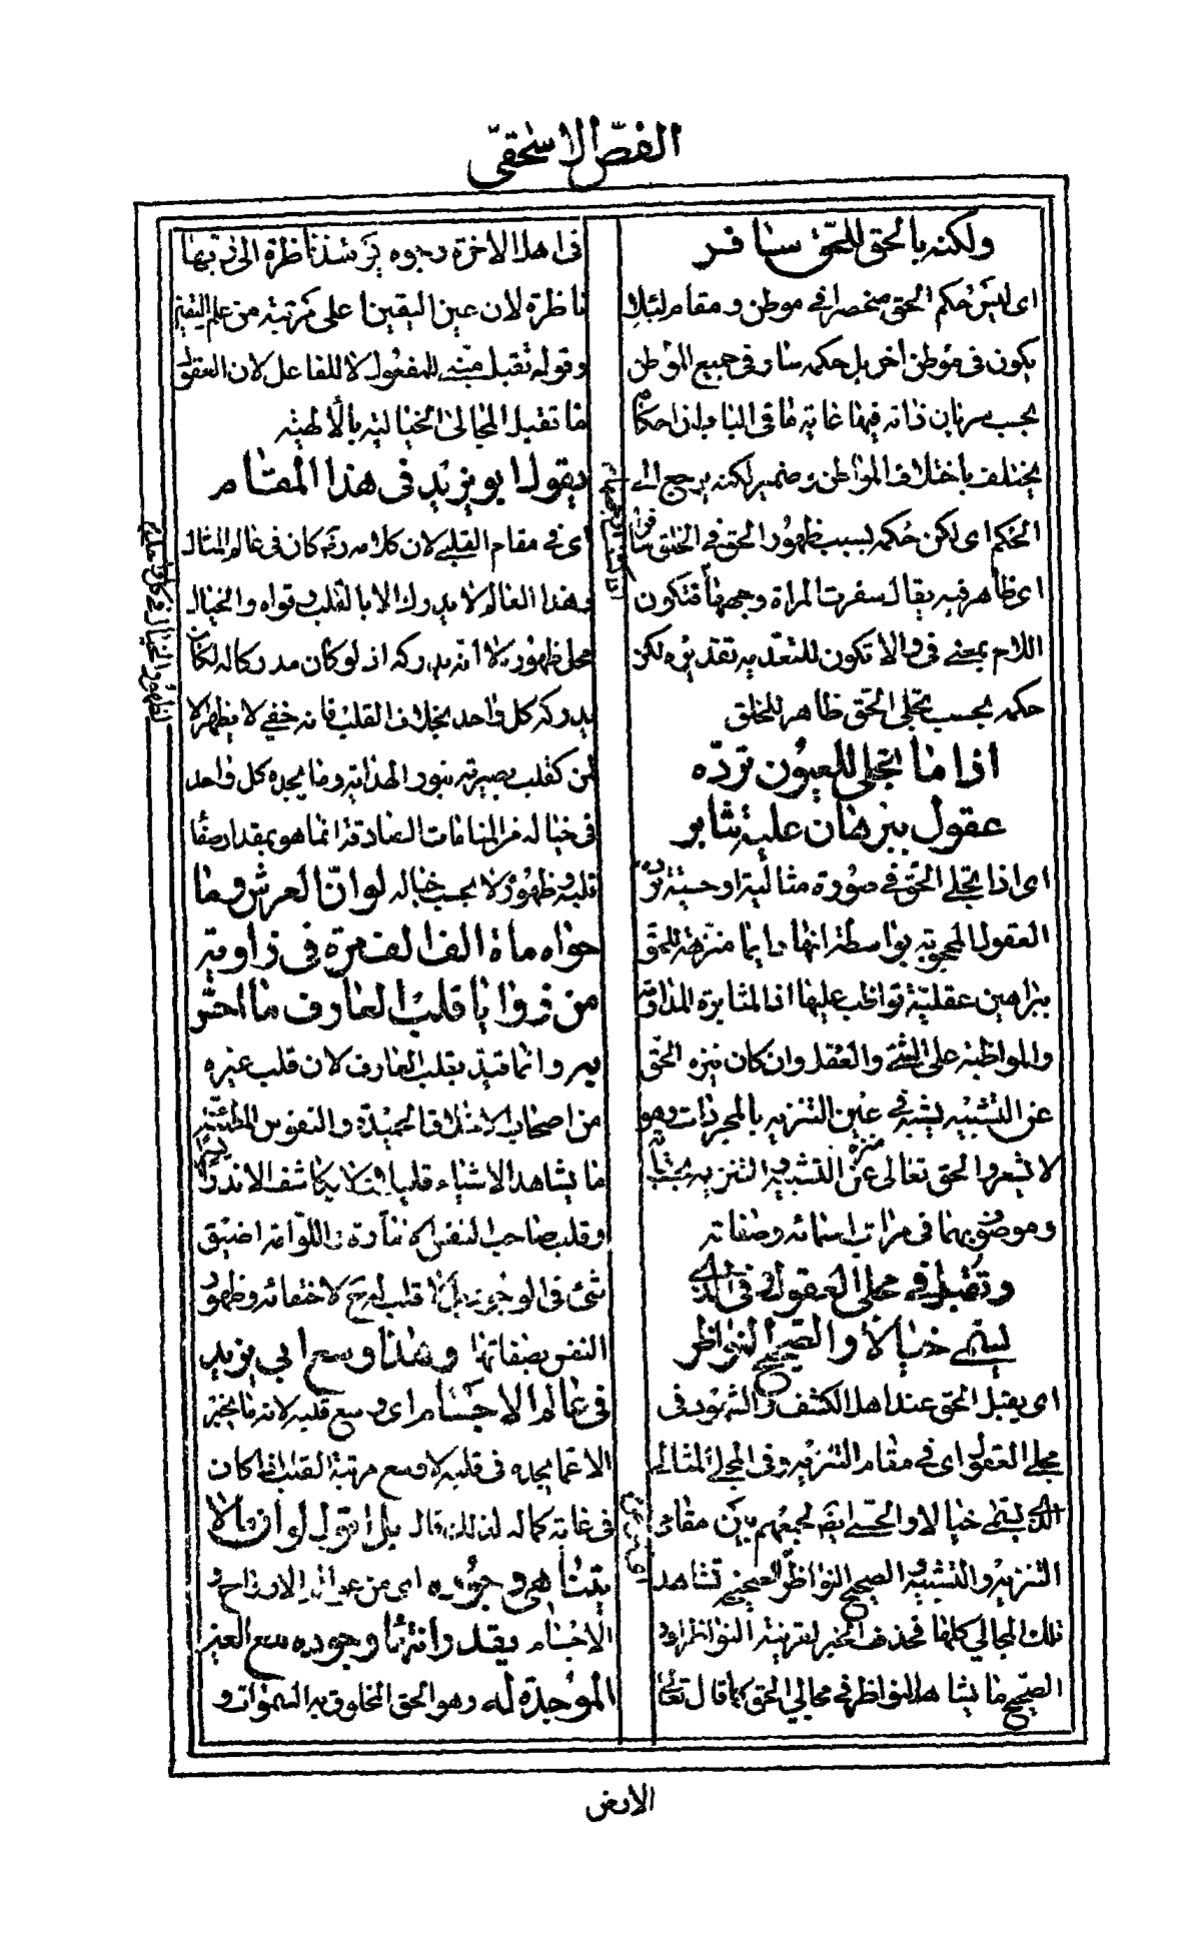 الفصّ الاسحقىّ
ولكنه بالحق للحق سافر
اى ليس حكم الحق منحصرا في موطن و مقام لئلا
يكون فى موطن اخر بل حكمه سار فى جميع المواطن
بحسب سريان ذاته فيها غاية ما فى الباب ان احكامه
يختلف باختلاف المواطن و ضمير لكنه يرجع الى
الحكم اى لكن حكمه بسبب ظهور الحق فى الخلق سافر
اى ظاهر فيه يقال سفرت المراة وجهها فتكون
اللام بمعنى فى والا تكون للتعدية تقديره لكن
حكمه بحسب تجلى الحق ظاهر للخلق
اذا ما تجلى للعيون تردّه
عقول ببرهان عليه تثابر
اى اذا تجلى الحق فى صورة مثالية او حسية تردّه
العقول المحجوبة بواسطة انها دايما منزهة للحق
ببراهين عقلية تواظب عليها اذ المثابرة المداومة
والمواظبة على الشئ والعقل وان كان ينزه الحق
عن التشبيه يشبه فى عين التنزيه بالمجردات وهو
لا يشعر والحق تعالى منزه عن التشبيه و التنزيه
وموصوف بهما فى مراتب اسمائه وصفاته
وتقبل فى مجلى العقول و فى الذى
يسمى خيالا والصحيح النواظر
اى يقبل الحق عند اهل الكشف والشهود فى
مجلى العقول اى فى مقام التنزيه وفى المجلى المثالى
الذى يسمى خيالا والحسى ايضا لجمعهم بين مقامى
التنزيه والتشبيه الصحيح النواظر الصحيح تشاهد
تلك المجالي كلها فحذف الخبر لقرينة النواظر او
الصحيح ما يشاهد النواظر فى مجالي الحق كما قال تعالى
فى اهل الاخرة وجوه يومئذ ناظرة الى ربها
ناظرة لان عين اليقين اعلى مرتبة من علم اليقين
وقوله تقبل مبنى للمفعول لا للفاعل لان العقول
ما تقبل المجالى الخيالية بالالهية
يقول ابو يزيد فى هذا المقام
اى في مقام القلب لان كلامه رض كان فى عالم المثال
وهذا العالم لا يدرك الا بالقلب وقواه والخيال
محل ظهوره لا انه يدركه اذ لو كان مدركا له لكان
يدركه كل واحد بخلاف القلب فانه خفي لا يظهر الا
لمن كحلت بصيرته بنور الهداية وما يجده كل واحد
فى خياله من المنامات الصادقة انما هو بمقدار صفاء
قلبه وظهوره لا بحسب خياله لو انّ العرش وما
حواه ماة الف الف مرة فى زاوية
من زوايا قلب العارف ما احسّ
به وانما قيد بقلب العارف لان قلب غيره
من اصحاب الاخلاق الحميدة والنفوس المطمئنة
ما يشاهد الاشياء قلبا بل لا يكاشف الا نذرا يسيرا
وقلب صاحب النفس الامارة و اللوامة اضيق
شئ فى الوجود بل لا قلب له ح لاختفائه وظهور
النفس بصفاتها وهذا وسع ابي يزيد
فى عالم الاجسام اى وسع قلبه لانه ما يخبر
الا عما يجده فى قلبه لا وسع مرتبة القلب اذا كان
فى غاية كماله لذلك قال بل اقول لو ان ما لا
يتناهى وجوده اى من عوالم الارواح و
الاجسام يقدر انتهاء وجوده مع العين
الموجدة له وهو الحق المخلوق به السموات و
الارض